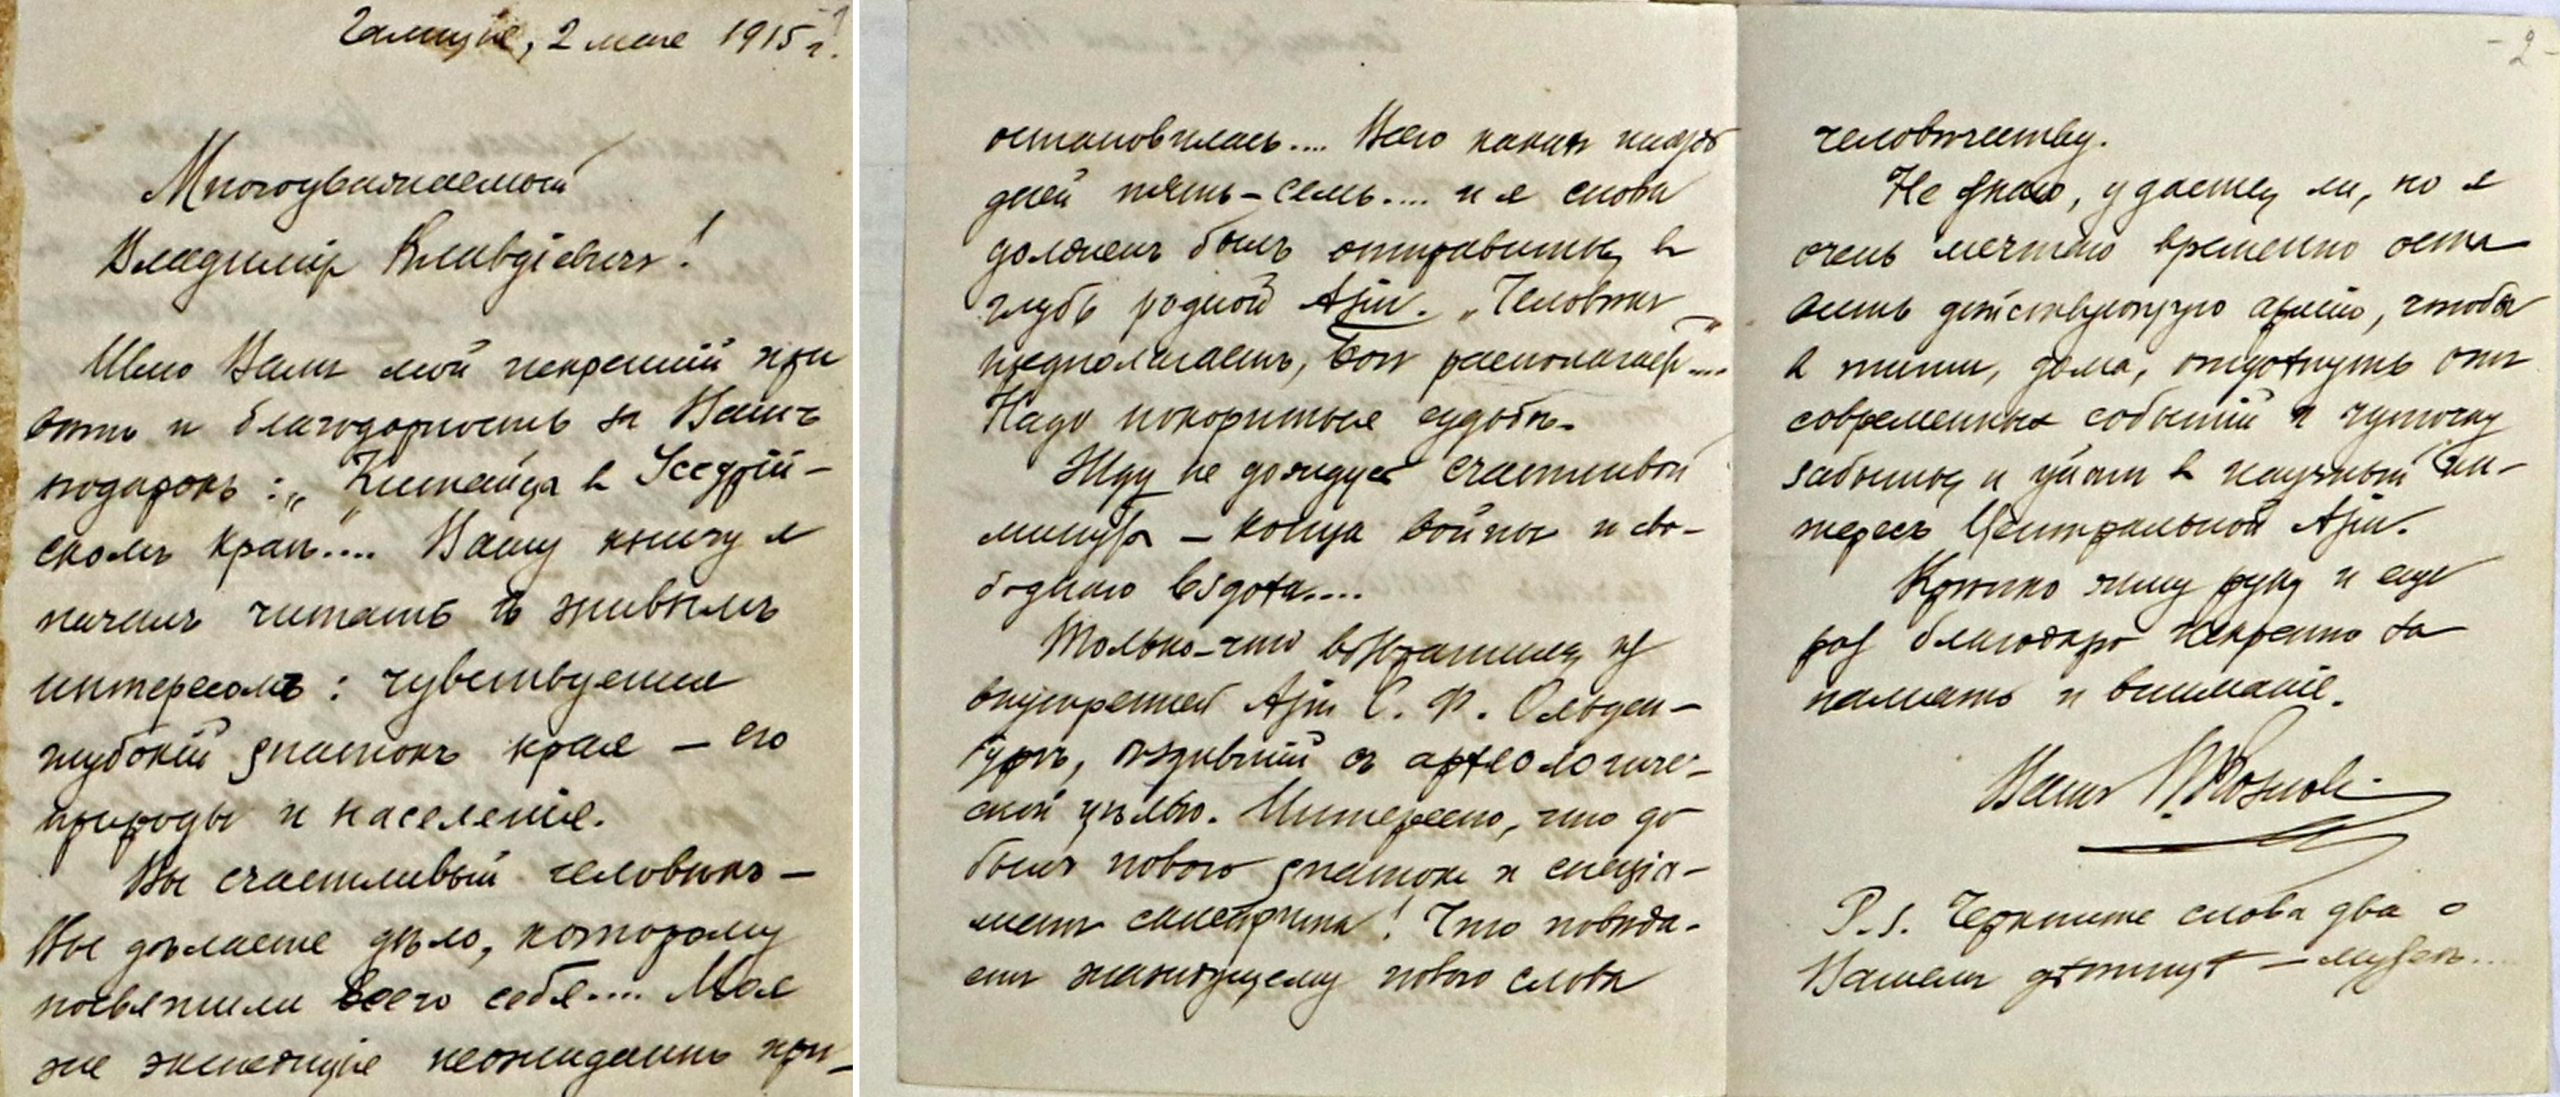 Галиція, 2 мая 1915 г.
Многоуважаемый
Владиміръ Клавдіевичъ!
Шлю Вамъ мой искренній при
вѣтъ и благодарность за Вашъ
подарокъ: „Китайцы в Уссурій-
скомъ краѣ".... Вашу книгу я
началъ читать съ живымъ
интересомъ: чувствуется
глубокій знатокъ края – его
природы и населенія.
Вы счастливый человѣкъ –
Вы дѣлаете дѣло, которому
посвятили всего себя.... Моя
же экспедиція неожиданно прі-
остановилась.... Всего какихъ нибудь
дней пять-семь.... и я снова
долженъ былъ отправиться в
глубь родной Азіи. „Человѣкъ
предполагаетъ, Богъ располагаетъ"....
Надо покориться судьбѣ.
Жду не дождусь счастливой
минуты – конца войны и сво-
боднаго вздоха....
Только-что возвратился из
внутренней Азіи С. Ф. Ольден-
бургъ, ѣздившій съ археологиче-
ской цѣлью. Интересно, что до
былъ новаго знатокъ и спеціа-
листъ санскрита! Что повѣда-
етъ жаждущему новаго слова
– 2 –
человѣчеству.
Не знаю, удастся ли, но я
очень мечтаю временно оста
вить дѣйствующую армію, чтобы
в тиши, дома, отдохнуть отъ
современныхъ событій и чуточку
забыться и уйти в научный ин-
тересъ Центральной Азіи.
Крѣпко жму руку и еще
раз благодарю искренно за
память и вниманіе.
Вашъ П. Козловъ.
P.S. Черкните слова два о
Вашемъ дѣтищѣ – музеѣ....